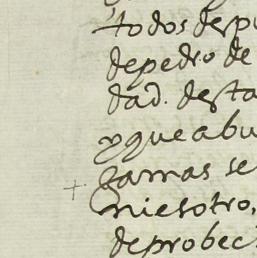 todos despu
de pedro de
dad. desta
y que abu
Jamas se
niesotro,
de probec